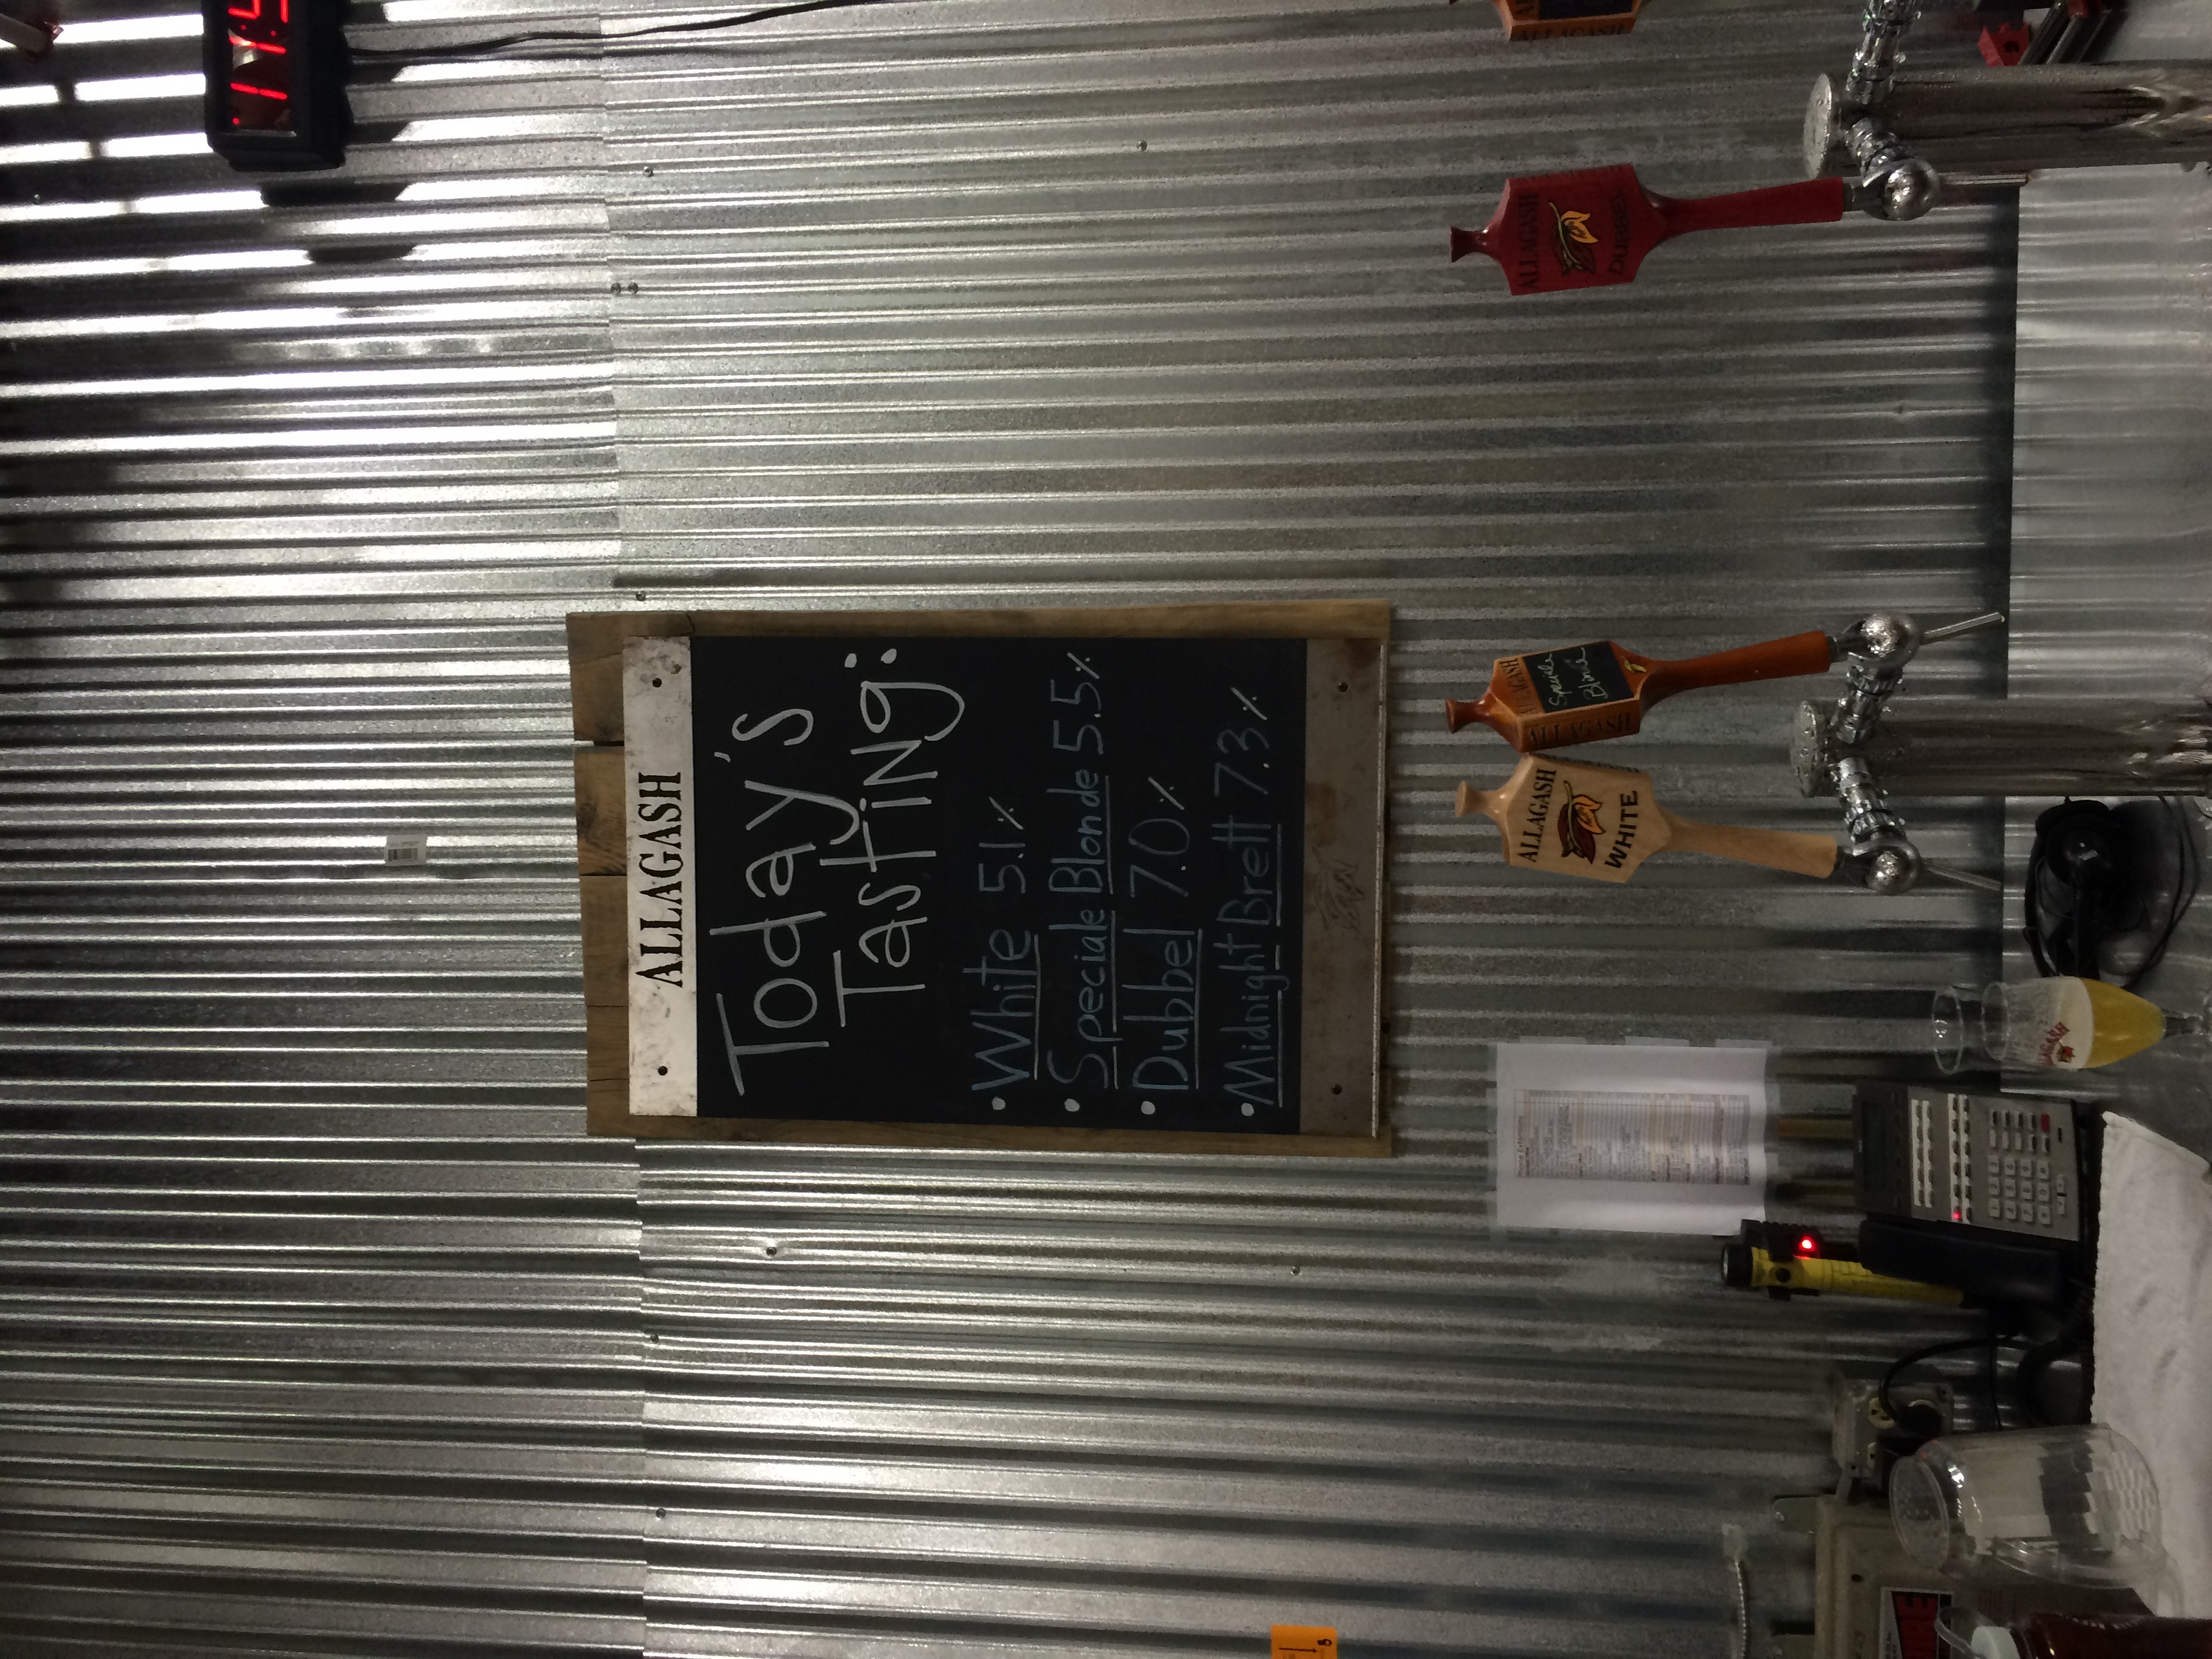 ALLAGASH
Today's
Tasting:
• White 5.1%
• Speciale Blonde 5.5%
• Dubbel 7.0%
• Midnight Brett 7.3%
ALLAGASH
WHITE
ALLAGASH
ALLAGASH
Speciale
Blonde
ALLAGASH
DUBBEL
ALLAGASH
ALLAGASH